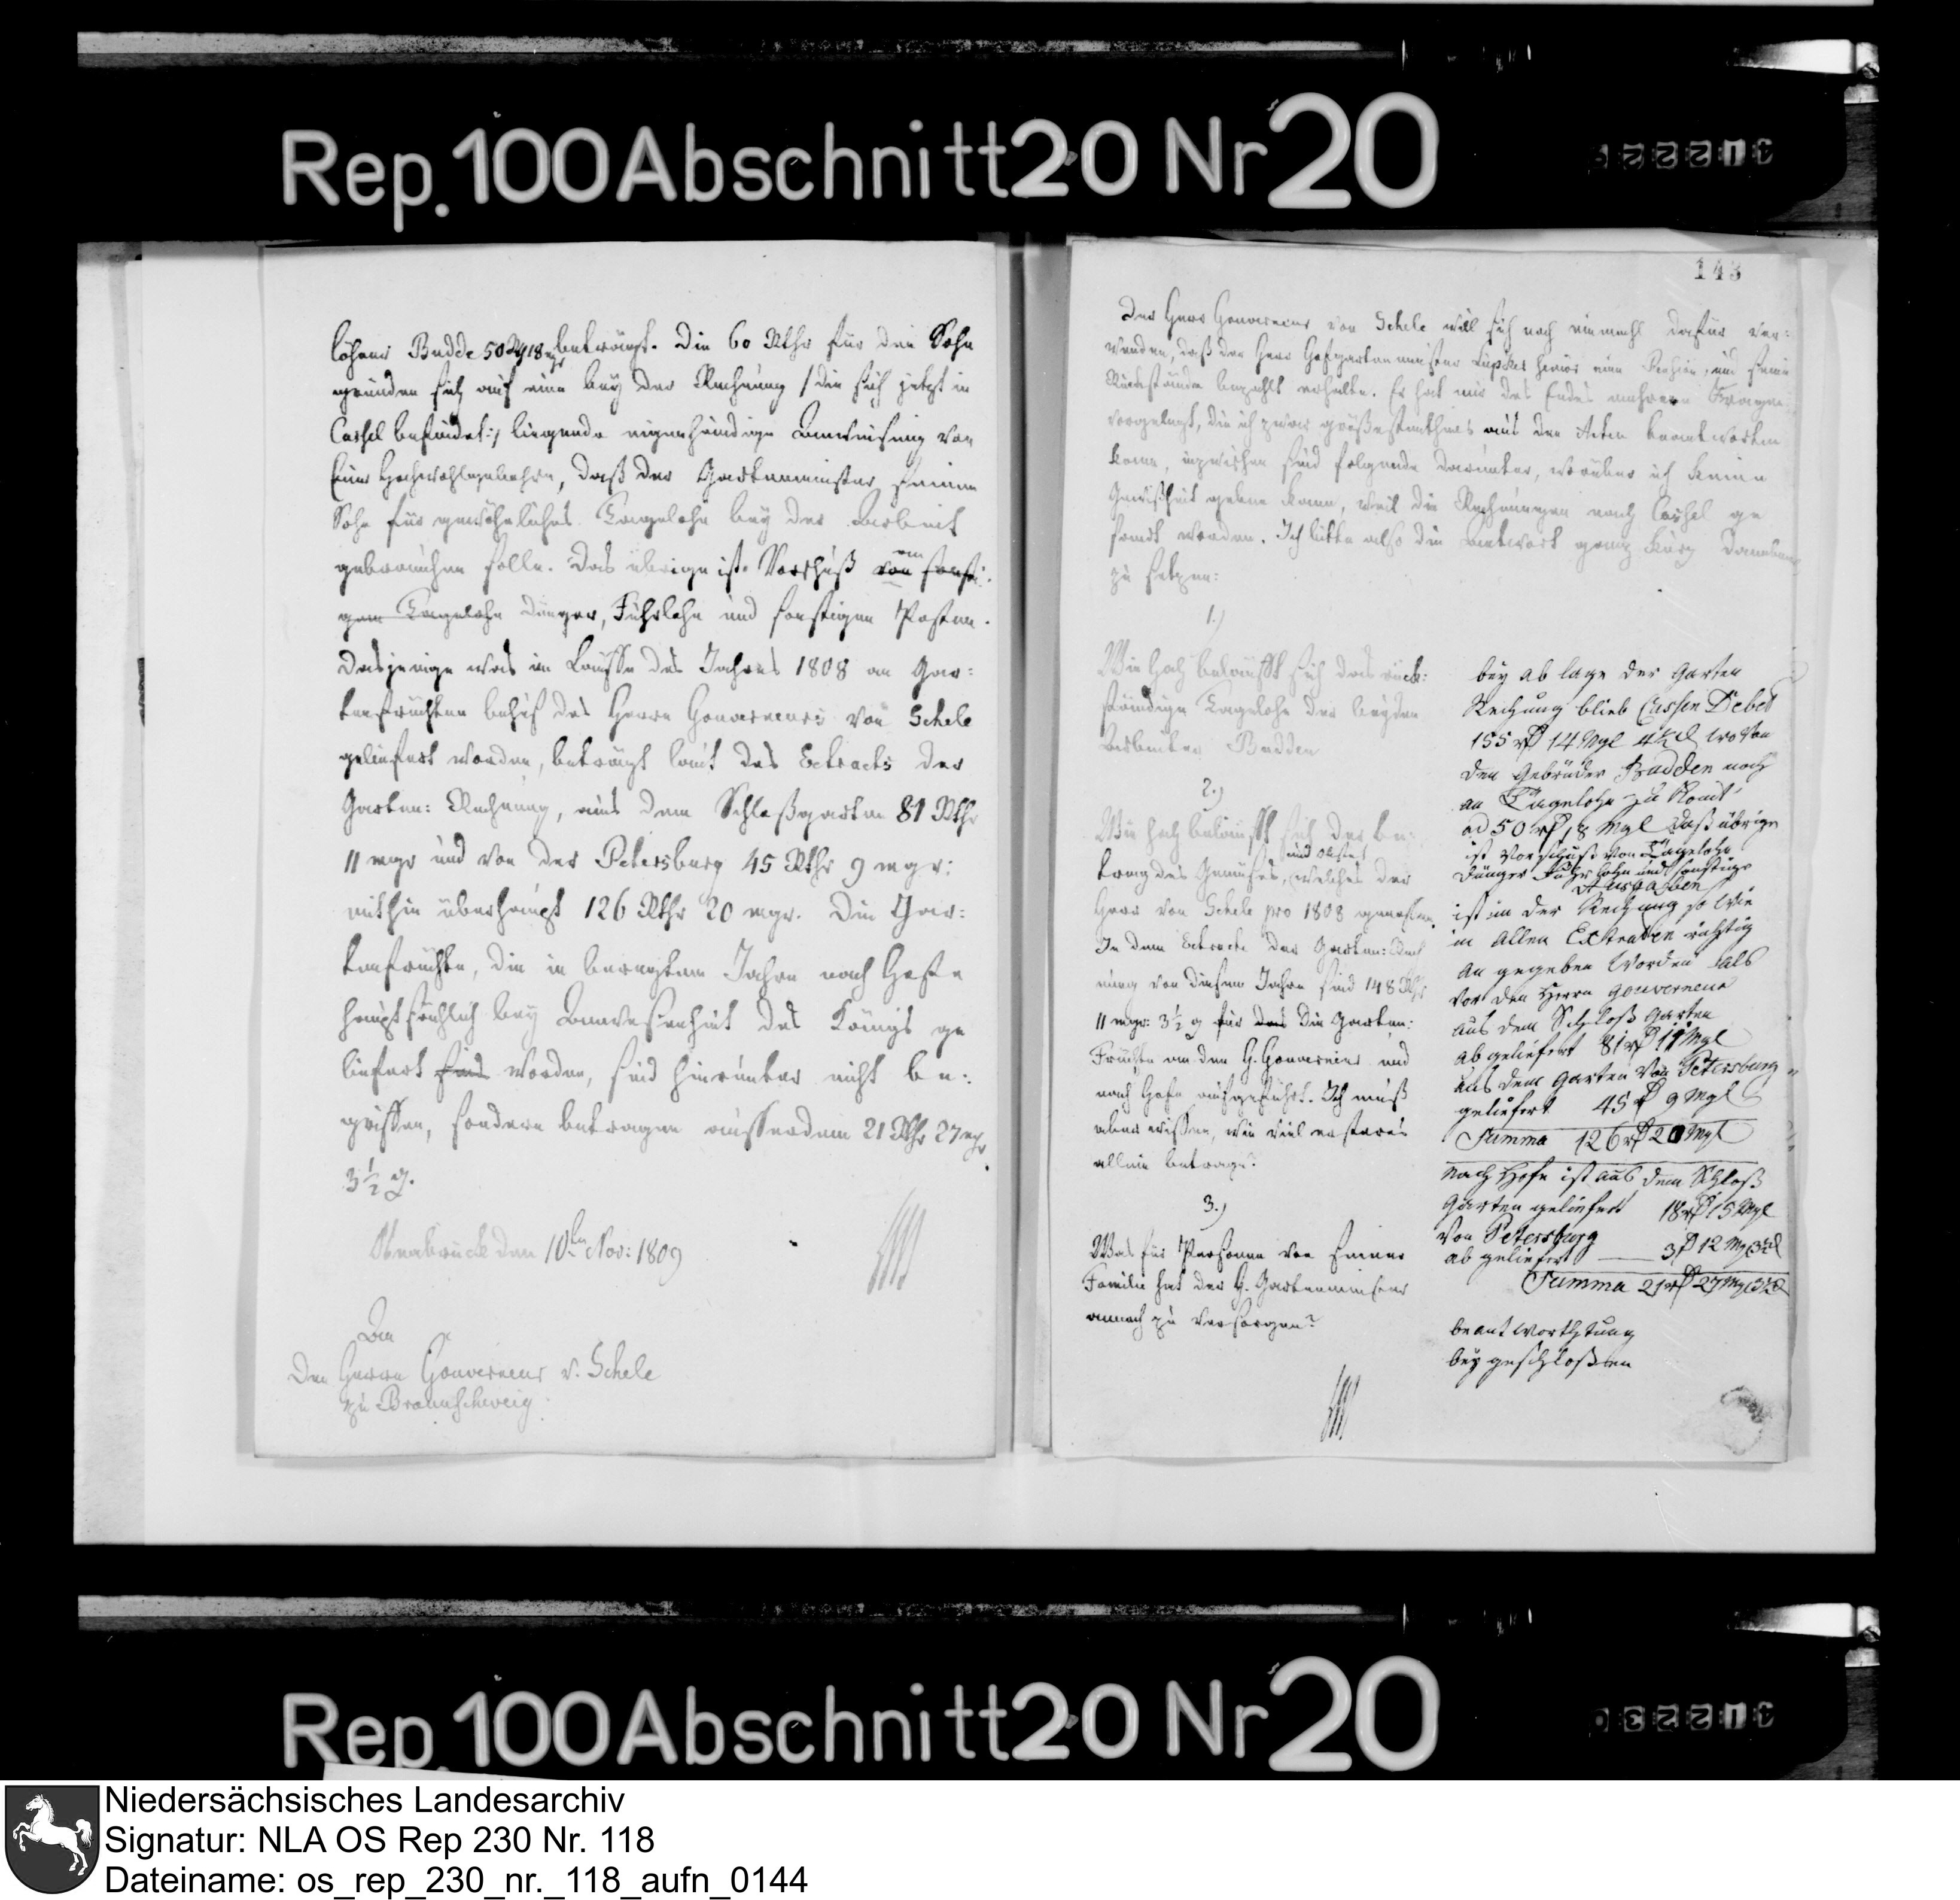 Rep. 100 Abschnitt 20 Nr 20
löhner Budde 50 Rthl 18 mgr beträgt. Die 60 Rthr für den Sohn
gründen sich auf eine bey der Rechnung /: die sich jetzt in
Cassel befindet :/ liegende eigenhändige Anweisung von
Euer Hochwohlgebohren, daß der Gartenmeister seinen
Sohn für gewöhnliches Tagelohn bey der Arbeit
gebrauchen solle. Das übrige ist Vorschuß von sonsti-
an
gem Tagelohn Dünger, Fuhrlohn und sonstigen Posten.
Dasjenige was im Lauffe des Jahres 1808 an Gar-
tenfrüchten behuf des Herrn Gouverneurs von Schele
geliefert worden, beträgt laut des Extracts der
Garten: Rechnung, aus dem Schloßgarten 81 Rthr
11 mgr und von der Petersburg 45 Rthr 9 mgr:
mithin überhaupt 126 Rthr 20 mgr. Die Gar-
tenfrüchte, die in beregtem Jahre nach Hofe
hauptsächlich bey Anwesenheit des Königs ge
liefert sind worden, sind hierunter nicht be-
griffen, sondern betragen ausserdem 21 Rthr 27 mgr
3½ d.
Osnabrück den 10ten Nov: 1809
An
den Herrn Gouverneur v. Schele
zu Braunschweig
143
Der Herr Gouverneur von Schele will sich noch einmahl dafür ver-
wenden, daß der Herr Hofgartenmeister hieher eine Pension, und seine
Rückstände bezahlt erhalte. Er hat mir des Endes mehrere Fragen
vorgelegt, die ich zwar größestentheils aus den Acten beantworten
kann, inzwischen sind folgende darunter, worüber ich keine
Gewißheit geben kann, weil die Rechnungen nach Cassel ge
sandt worden. Ich bitte also die Antwort ganz kurz daneben
zu setzen:
1.)
Wie hoch beläufft sich das rück-
ständige Tagelohn der beyden
Arbeiter Budden
2.)
Wie hoch beläufft sich der Be-
trag des Gemüses, welches der
und Obstes
Herr von Schele pro 1808 genossen.
In dem Extracte der Garten: Rech
nung von diesem Jahre sind 148 Rthr
11 mgr: 3½ d für das die Garten-
Früchte an den H. Gouverneur und
nach Hofe aufgeführt. Ich muß
aber wissen, wie viel ersteres
allein betrage?
3.)
Was für Personen von seiner
Familie hat der H. Gartenmeister
annoch zu versorgen?
bey ab lage der Garten
Rechnung blieb Cassen Debet
155 rth 14 Mgl 4½ d wo von
den Gebrüder Budden noch
an Tagelohn zu komt
ad 50 rth 18 Mgl daß übrige
ist Vorschuß von Tagelohn
Dünger Fuhr lohn und sonstige
Ausgaben
ist in der Rechnung so wie
in allen Extracten richtig
an gegeben worden als
vor den Herrn Gouverneur
aus dem Schloß Garten
ab geliefert 81 rth 11 Mgl
aus dem Garten von Petersburg
geliefert 45 rth 9 Mgl
Summa 126 rth 20 Mgl
nach Hofe ist aus dem Schloß
Garten geliefert 18 rth 15 Mgl
von Petersburg
ab geliefert 3 rth 12 Mgl 3½ d
Summa 21 rth 27 Mgl 3½ d
beant worthtung
bey geschloßen
Rep. 100 Abschnitt 20 Nr 20
Niedersächsisches Landesarchiv
Signatur: NLA OS Rep 230 Nr. 118
Dateiname: os_rep_230_nr._118_aufn_0144